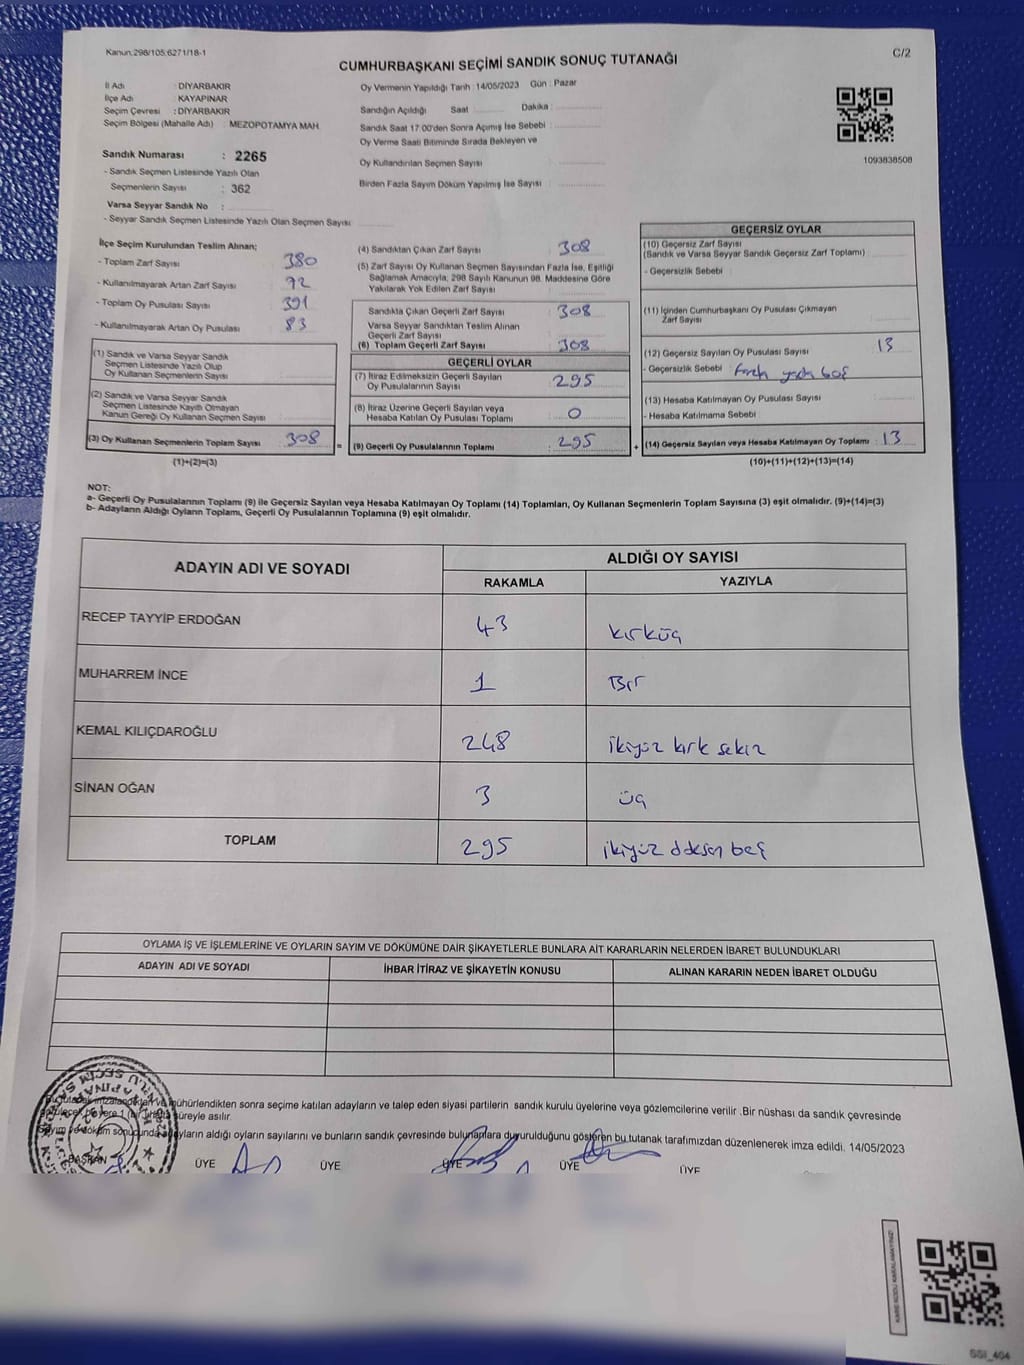 Kanun.298/105;6271/18-1
C/2
CUMHURBAŞKANI SEÇİMİ SANDIK SONUÇ TUTANAĞI
İl Adı : DİYARBAKIR
İlçe Adı : KAYAPINAR
Seçim Çevresi : DİYARBAKIR
Seçim Bölgesi (Mahalle Adı) : MEZOPOTAMYA MAH.
Sandık Numarası : 2265
- Sandık Seçmen Listesinde Yazılı Olan
Seçmenlerin Sayısı : 362
Varsa Seyyar Sandık No :
- Seyyar Sandık Seçmen Listesinde Yazılı Olan Seçmen Sayısı
Oy Vermenin Yapıldığı Tarih : 14/05/2023 Gün : Pazar
Sandığın Açıldığı Saat Dakika :
Sandık Saat 17:00'den Sonra Açımış İse Sebebi :
Oy Verme Saati Bitiminde Sırada Bekleyen ve
Oy Kullandırılan Seçmen Sayısı :
Birden Fazla Sayım Döküm Yapılmış İse Sayısı :
1093838508
İlçe Seçim Kurulundan Teslim Alınan;
- Toplam Zarf Sayısı : 380
- Kullanılmayarak Artan Zarf Sayısı : 92
- Toplam Oy Pusulası Sayısı : 391
- Kullanılmayarak Artan Oy Pusulası : 83
(1) Sandık ve Varsa Seyyar Sandık
Seçmen Listesinde Yazılı Olup
Oy Kullanan Seçmenlerin Sayısı :
(2) Sandık ve Varsa Seyyar Sandık
Seçmen Listesinde Kayıtlı Olmayan
Kanun Gereği Oy Kullanan Seçmen Sayısı :
(3) Oy Kullanan Seçmenlerin Toplam Sayısı : 308 =
(1)+(2)=(3)
(4) Sandıktan Çıkan Zarf Sayısı : 308
(5) Zarf Sayısı Oy Kullanan Seçmen Sayısından Fazla İse, Eşitliği
Sağlamak Amacıyla, 298 Sayılı Kanunun 98. Maddesine Göre
Yakılarak Yok Edilen Zarf Sayısı :
Sandıkta Çıkan Geçerli Zarf Sayısı : 308
Varsa Seyyar Sandıktan Teslim Alınan
Geçerli Zarf Sayısı :
(6) Toplam Geçerli Zarf Sayısı : 308
GEÇERLİ OYLAR
(7) İtiraz Edilmeksizin Geçerli Sayılan
Oy Pusulalarının Sayısı : 295
(8) İtiraz Üzerine Geçerli Sayılan veya
Hesaba Katılan Oy Pusulası Toplamı : 0
(9) Geçerli Oy Pusulalarının Toplamı : 295 +
GEÇERSİZ OYLAR
(10) Geçersiz Zarf Sayısı
(Sandık ve Varsa Seyyar Sandık Geçersiz Zarf Toplamı) :
- Geçersizlik Sebebi :
(11) İçinden Cumhurbaşkanı Oy Pusulası Çıkmayan
Zarf Sayısı :
(12) Geçersiz Sayılan Oy Pusulası Sayısı : 13
- Geçersizlik Sebebi :
(13) Hesaba Katılmayan Oy Pusulası Sayısı :
- Hesaba Katılmama Sebebi :
(14) Geçersiz Sayılan veya Hesaba Katılmayan Oy Toplamı : 13
(10)+(11)+(12)+(13)=(14)
NOT:
a- Geçerli Oy Pusulalarının Toplamı (9) ile Geçersiz Sayılan veya Hesaba Katılmayan Oy Toplamı (14) Toplamları, Oy Kullanan Seçmenlerin Toplam Sayısına (3) eşit olmalıdır. (9)+(14)=(3)
b- Adayların Aldığı Oyların Toplamı, Geçerli Oy Pusulalarının Toplamına (9) eşit olmalıdır.
ADAYIN ADI VE SOYADI
ALDIĞI OY SAYISI
RAKAMLA YAZIYLA
RECEP TAYYİP ERDOĞAN 43 kırküç
MUHARREM İNCE 1 Bir
KEMAL KILIÇDAROĞLU 248 ikiyüz kırk sekiz
SİNAN OĞAN 3 üç
TOPLAM 295 ikiyüz doksan beş
OYLAMA İŞ VE İŞLEMLERİNE VE OYLARIN SAYIM VE DÖKÜMÜNE DAİR ŞİKAYETLERLE BUNLARA AİT KARARLARIN NELERDEN İBARET BULUNDUKLARI
ADAYIN ADI VE SOYADI İHBAR İTİRAZ VE ŞİKAYETİN KONUSU ALINAN KARARIN NEDEN İBARET OLDUĞU
mühürlendikten sonra seçime katılan adayların ve talep eden siyasi partilerin sandık kurulu üyelerine veya gözlemcilerine verilir .Bir nüshası da sandık çevresinde
süreyle asılır.
adayların aldığı oyların sayılarını ve bunların sandık çevresinde bulunanlara duyurulduğunu gösteren bu tutanak tarafımızdan düzenlenerek imza edildi. 14/05/2023
BAŞKAN ÜYE ÜYE ÜYE ÜYE ÜYE
KARE KODU KARALAMAYINIZ!
SSI_404